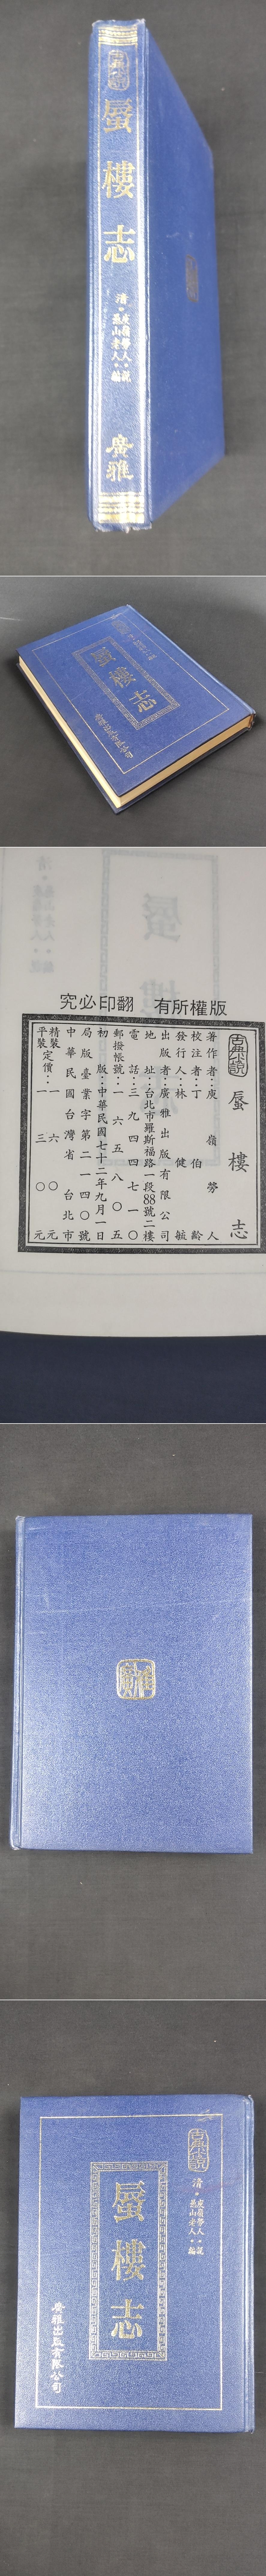 古典小說
蜃樓志
清・庾嶺勞人・說
禺山老人・編
廣雅
蜃樓志
廣雅出版有限公司
版權所有　翻印必究
古典小說 蜃樓志
著作者：庾嶺勞人
校注者：丁伯齡
發行人：林健毓
出版者：廣雅出版有限公司
地址：台北市羅斯福路一段88號二樓
電話：三九四四七一〇
郵撥帳號：一六五八〇五
初版：中華民國七十二年九月一日
局版臺業字第二一四〇號
中華民國台灣省台北市
精裝定價：一六〇元
平裝定價：一三〇元
廣雅
古典小說
清・庾嶺勞人・說
禺山老人・編
蜃樓志
廣雅出版有限公司